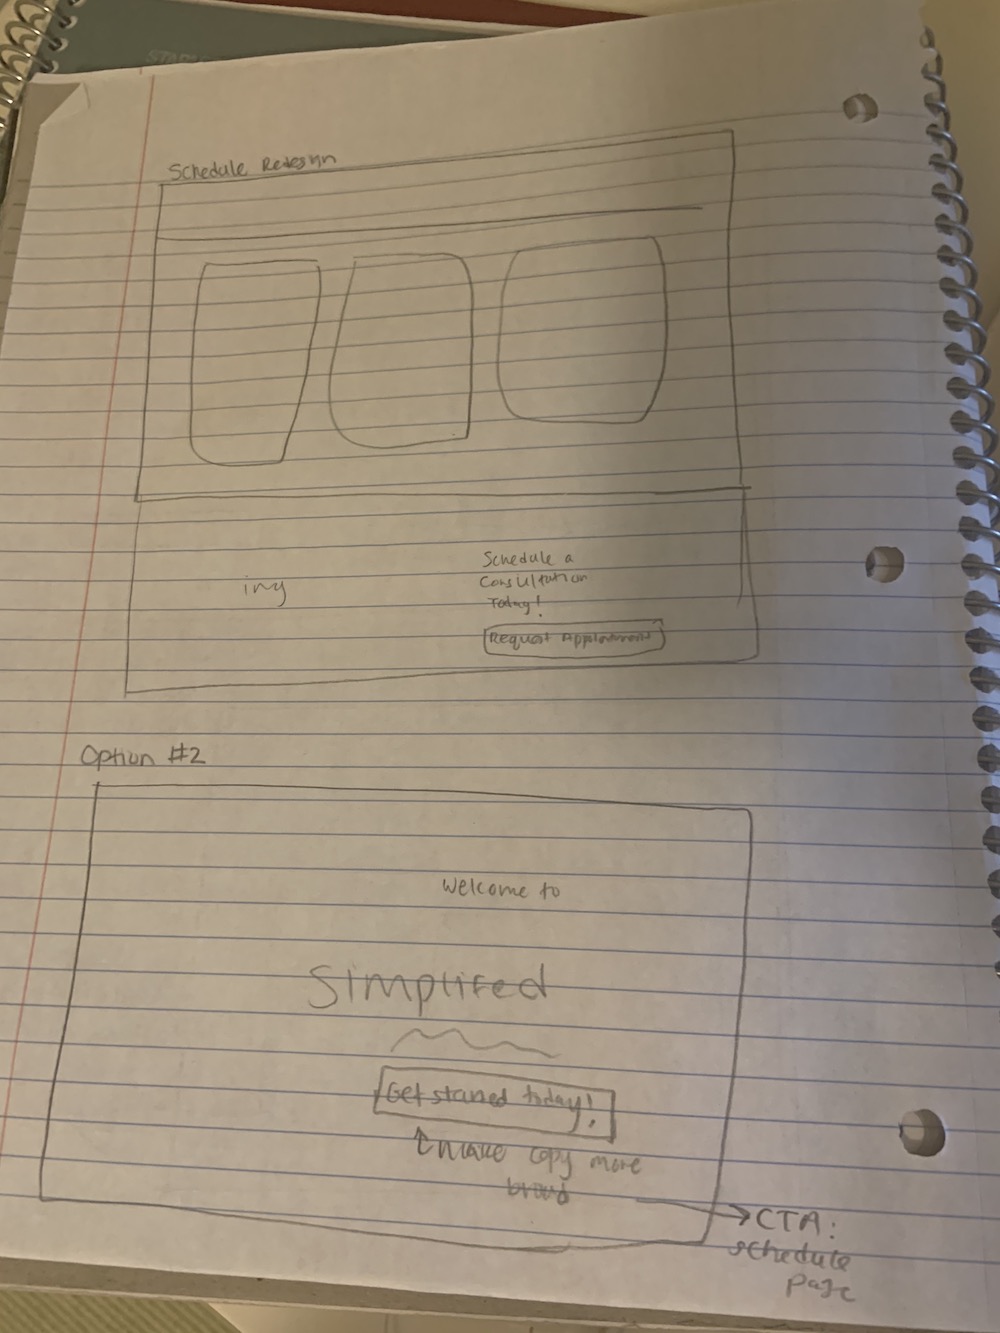 Schedule Redesign
Schedule a
Consultation
Today!
Request Appointment
Option #2
Welcome to
Simplifed
Get started today!
↑ make copy more
broad
→ CTA:
schedule
page